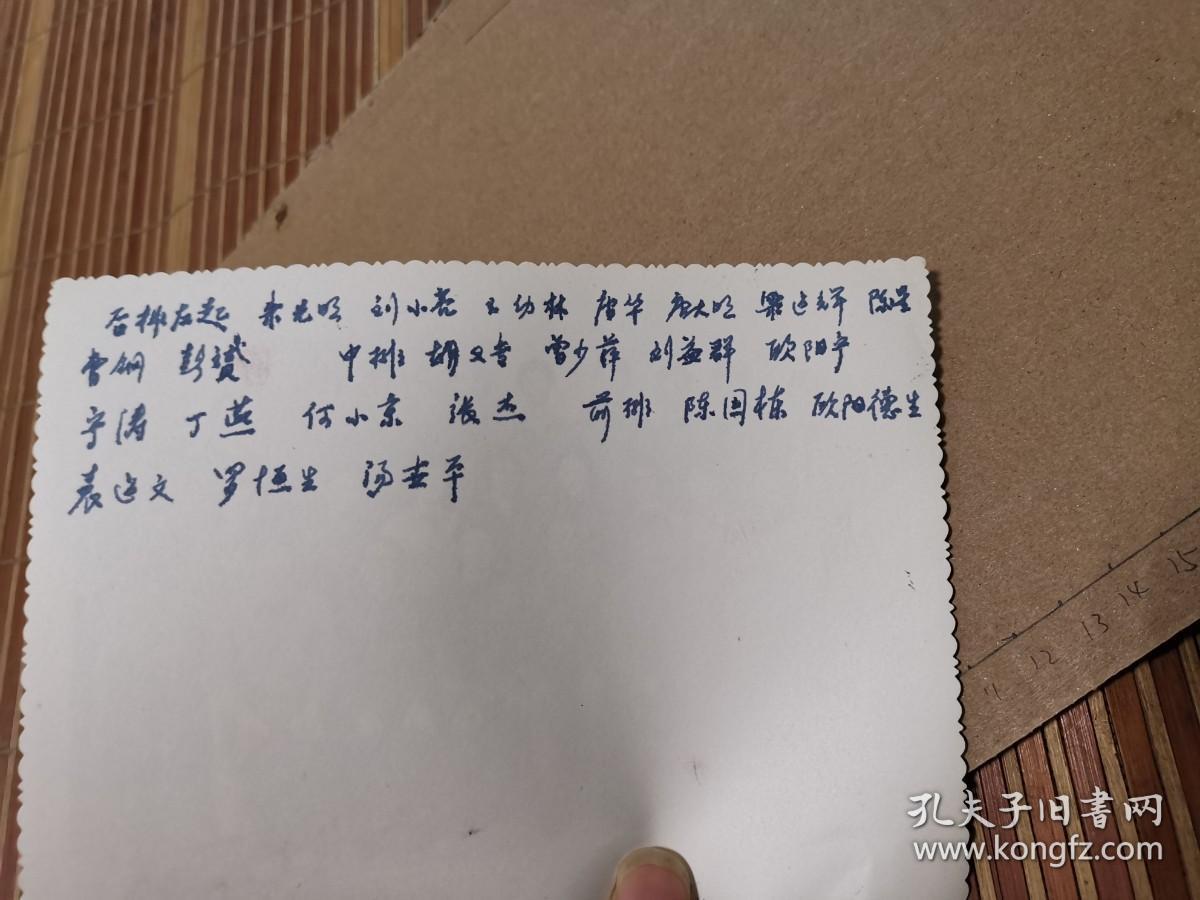 后排左起 朱光明 刘小亮 王幼林 唐华 唐大明 梁运祥 陈星
曹钢 彭斌 中排 胡文香 曾少萍 刘益群 欧阳宁
宁涛 丁燕 何小京 張杰 前排 陈国栋 欧阳德生
袁迎文 罗恒生 汤世平
11 12 13 14 15
孔夫子旧书网
www.kongfz.com